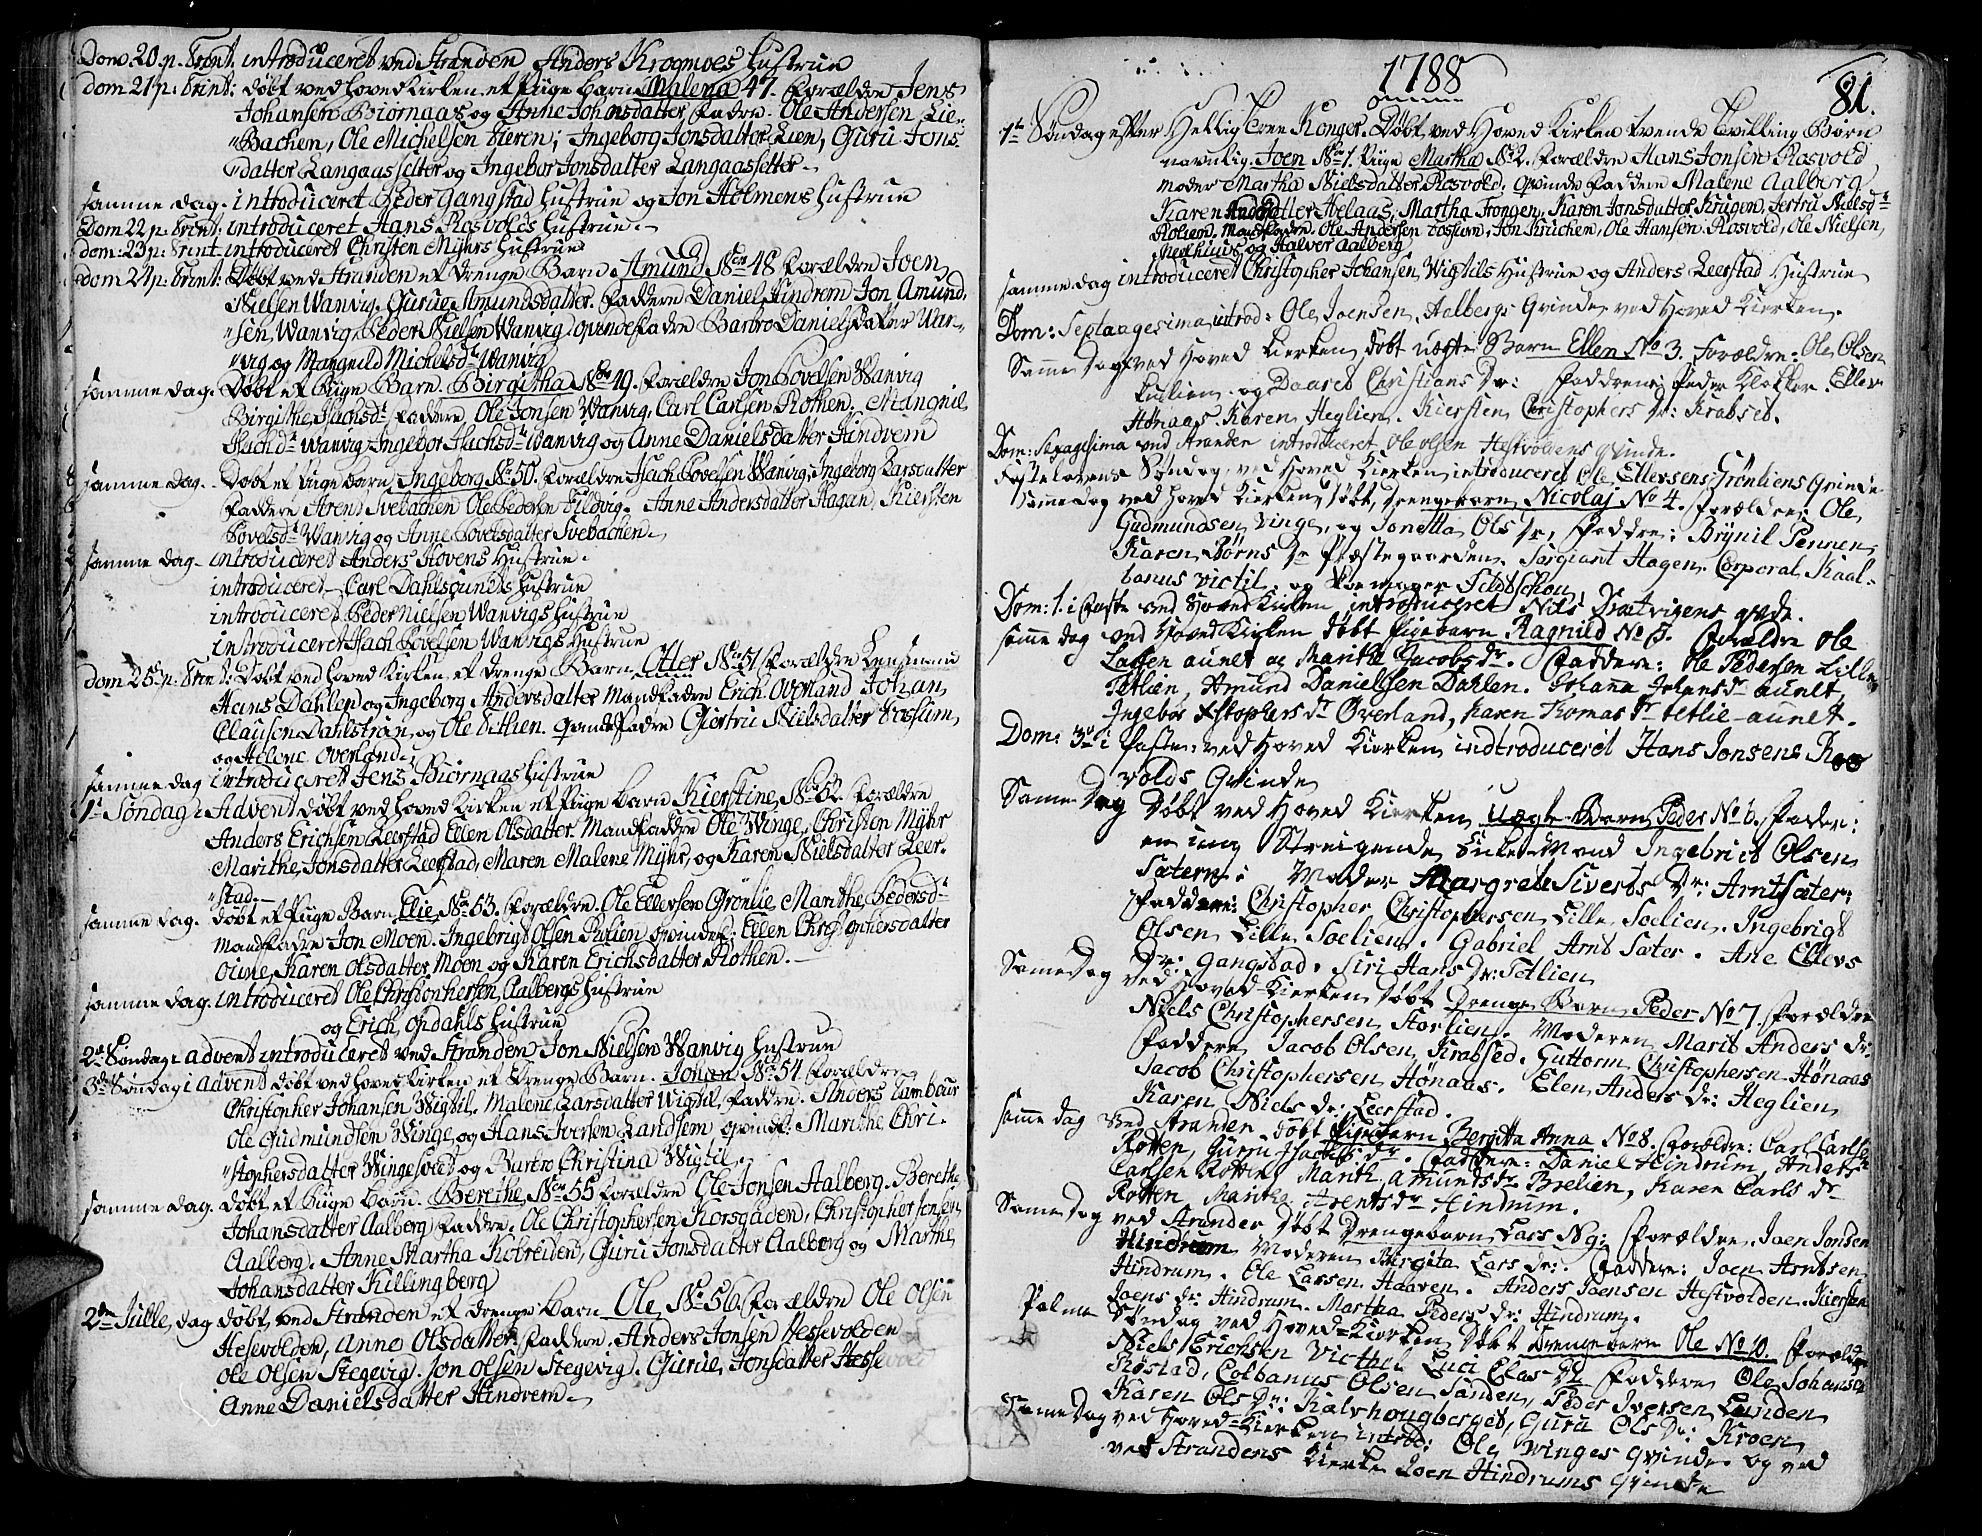 Dom. 20 p. Trint. introduceret ved Stranden Anders Krogmoes Hustrue
dom 21 p: Trint: døbt ved hoved Kirken et Pige Barn Malena 47. Forældre Jens
Johansen Biørnaas og Anne Johansdatter Faddre. Ole Andersen Lie-
"Bachen, Ole Michelsen Tieren; Ingeborg Jonsdatter Lien, Guru Jons
"datter Langaassetter og Ingebor Jonsdatter Langaassetter.
samme dag. introduceret Peder Gangstad Hustrue og Jon Holmens Hustrue
Dom 22 p. Trint: introduceret Hans Rosvolds Hustrue.
dom: 23 p: Trint. introduceret Christen Myhrs Hustrue
dom 24 p: Trint: Døbt ved Stranden et Drenge Barn. Amund No 48 Forældre Joen
Nielsen Wanvig. Gurue Amundsdatter. Faddere Daniel Hindrem Jon Amund.
"sen Wanvig Peder Nielsen Wanvig qvindefadre Barbro Danielsdatter Wan-
"vig og Mangnild Michelsd. Wanvig
samme dag. Døbt et Pige Barn. Birgitha No 49. Forældre Jon Povelsen Wanvig
Birgithe Isachsd. Faddere Ole Jonsen Wanvig. Carl Carlsen Rothen. Mangnil
Isachd. Wanvig Ingebor Isachsd. Wanvig og Anne Danielsdatter Hindrem
samme dag. Døbt et Pige Barn Ingeborg No 50. Forældre Isach Povelsen Wanvig, Ingeborg Larsdatter
Faddere Arent Svebachen Ole Pedersen Fildvig. Anne Andersdatter Hagan, Kiersten
Povelsd. Wanvig og Anne Povelsdatter Svebachen.
samme dag. introduceret Anders Hovens Hustrue.
introduceret Carl Dahlsgunets Hustrue
introduceret Peder Nielsen Wanvigs Hustrue
introduceret Isach Povelsen Wanvigs Hustrue
dom 25 p: Trint: Døbt ved hoved Kirken et drenge Barn Otter No 51 Forældre
Hans Dahlen og Ingeborg Andersdatter Mandfadere Erich Overland Johan
Clausen Dahlstrøn, og Ole Tithen. Qvindefadre Giertru Nielsdatter Fossum
og Helene Overland.
samme dag introduceret Jens Biørnaas Hustrue
1te Søndag i Advent døbt ved hoved Kirken et Pige barn Kierstine No 52. Forældre
Anders Erichsen Leerstad Ellen Olsdatter. Mandfaddre Ole Winge, Christen Myhr
Marithe Jonsdatter Leerstad, Maren Malene Myhr, og Karen Nielsdatter Leer.
"stad.
samme dag. døbt et Pige Barn Elie No 53. Forældre. Ole Ellersen Grønlie Marithe Pedersd.
mandfadre Jon Moen. Ingebrigt Olsen qvindef: Ellen Christophersdatter
Oune, Karen Olsdatter Moen og Karen Erichsdatter Rothen.
samme dag. introduceret Ole Christophersen Aalbergs Hustrue
og Erich Opdahls Hustrue
2de Søndag i advent introduceret ved Stranden Jon Nielsen Wanvig Hustrue
3de Søndag i advent døbt ved hoved Kirken et Drenge Barn. Johan No 54. Forældre
Christopher Johansen Wigtil. Malene Larsdatter Wigtil, Faddre. Anders Tambour
Ole Gudmundsen Winge, og Hans Iversen Landsem qvindf: Marithe Chri.
"stophersdatter Wingesvet og Barbro Christina Wigtil.
samme dag døbt et Pige barn. Berethe No 55 Forældre Ole Jonsen Aalberg. Berethe
Johansdatter Aalberg Faddre. Ole Christophersen Korsgaden, Christopher Jensen
Aalberg. Anne Martha Kobreiden, Guru Jonsdatter Aalberg og Marthe
Johansdatter Killingberg
2den Julle, dag døbt ved Stranden et drenge barn Ole No 56. Forældre Ole Olsen
Hesevolden, Anne Olsdatter. Faddere. Anders Jonsen Hessevolden
Ole Olsen Stegevig. Jon Olsen Stegevig. Gurue Jonsdatter Hessevold
Anne Danielsdatter Hindrem.
1788
81.
1te Søndag efter Hellig Tree Konger. Døbt ved Hoved Kirken tvende Tvilling Børn
navnlig. Joen No 1. Pige Martha No 2. Forældre Hans Jonsen Rosvold
moder Martha Nielsdatter Rosvold: Qvinde Faddere Malene Aalberg
Karen datter Avelaas, Martha Trongen, Karen Jonsdatter Krugen, Siertru Nielsd.
Rolsen. Mandfadre. Ole Andersen Fossum, Jon Kruchen, Ole Hansen Rosvold, Ole Nielsen,
og Halver Aalberg
samme dag introduceret Christopher Johansen Wigtils Hustrue og Anders Leerstad Hustrue
Dom: Septuagesima introd: Ole Joensen Aalbergs Qvinde ved Hoved Kierken.
Samme Dag ved Hoved Kierken døbt uægte Barn Ellen No 3. Forældre: Ole Olsen
og Baaret Christians Dr: Faddrene: Peder Klokker. Ellen
Hønaas. Karen Heglien. Kiersten Christophers Dr: Krabsed.
Dom: Sexagesima ved Stranden introduceret Ole Olsen Hestvoldens qvinde.
Fastelavens Søndag ved Hoved Kierken introduceret Ole Ellersens Grønliens Qvinde
Samme dag ved Hoved Kierken døbt Drengebarn Nicolaj No 4. Forældre: Ole
Gudmundsen Vinge, og Jonetta Ols Dr, Faddre: Brynil Pennen,
Karen Børns Dr Præstegaarden. Sergiant Hagen. Corporal Kaal-
banus Victil. og Skoemager Schou
Dom: 1. i Faste ved Hoved Kirken introduceret Nils Drætvigens qvde.
samme dag ved Hoved Kirken døbt Pigebarn Ragnild No 5. Forældre Ole
Larsen aunet og Marithe Jacobs dr. Faddere: Ole Pedersen Lille
Tetlien, Amund Danielsen Dahlen. Johana Johans dr aunet,
Ingebor Xstophers dr Overland, Karen Thomas dr tetlie-aunet.
Dom: 3die i Faste: ved Hoved Kierken indtroduceret Hans Jonsens Roes
volds Qvinde
Samme Dag Døbt ved Hoved Kierken Uægte Barn Peder No 6. Fader:
en ung Streigende Enke-Mand Ingebrict Olsen
Sætern: Moder Margrete Siverts Dr: Arntsæter:
Faddere: Christopher Christophersen Lille Soelien. Ingebrigt
Olsen Lille Soelien. Gabriel Arnt Sæter. Ane Ellers
Dr: Gangstad. Siri Hans Dr: Tetlien
Samme Dag ved Hoved-Kierken døbt Drenge Barn Peder No 7. Forældre
Niels Christophersen Storlien. Moderen Marit Anders Dr:
Faddere Jacob Olsen Krabsed. Guttorm Christophersen Hønaas
Jacob Christophersen Hønaas. Elen Anders Dr: Heglien
Karen Niels Dr: Leerstad.
samme dag ved Stranden døbt Pigebarn Bergitta Anna No 8. Forældre: Carl Carlsen
Rotten, Guru Isachs dr. Faddere: Daniel Hindrum, Anders
Carlsen Rotten, Marit Amunds dr Brelien, Karen Carls dr
Rotten Maritha Arents dr Hindrum.
Samme Dag ved Strander døbt Drengebarn Lars N 9: Forældre. Joen Jonsen
Hindrum Moderen Birgita Lars Dr: Faddere: Joen Arntsen
Hindrum. Ole Larsen Haaven. Anders Joensen Hestvolden. Kiersten
Joens Dr: Hindrum. Martha Peders Dr: Hindrum.
Palme Søndag ved Hoved-Kierken døbt Drengebarn Ole No 10. Forældre
Niels Erichsen Victhel Luci Elas Dr Faddere Ole Johansen
Røstad, Colbanus Olsen Sanden, Peder Iversen Lunden
Karen Ols Dr: Kalvhougberget, Guru Ols Dr: Kroen
Samme Dag ved Hoved-Kierken introd: Ole Winges Qvinde og ved
ved Strandens Kierke Joen Hindrums Qvinde